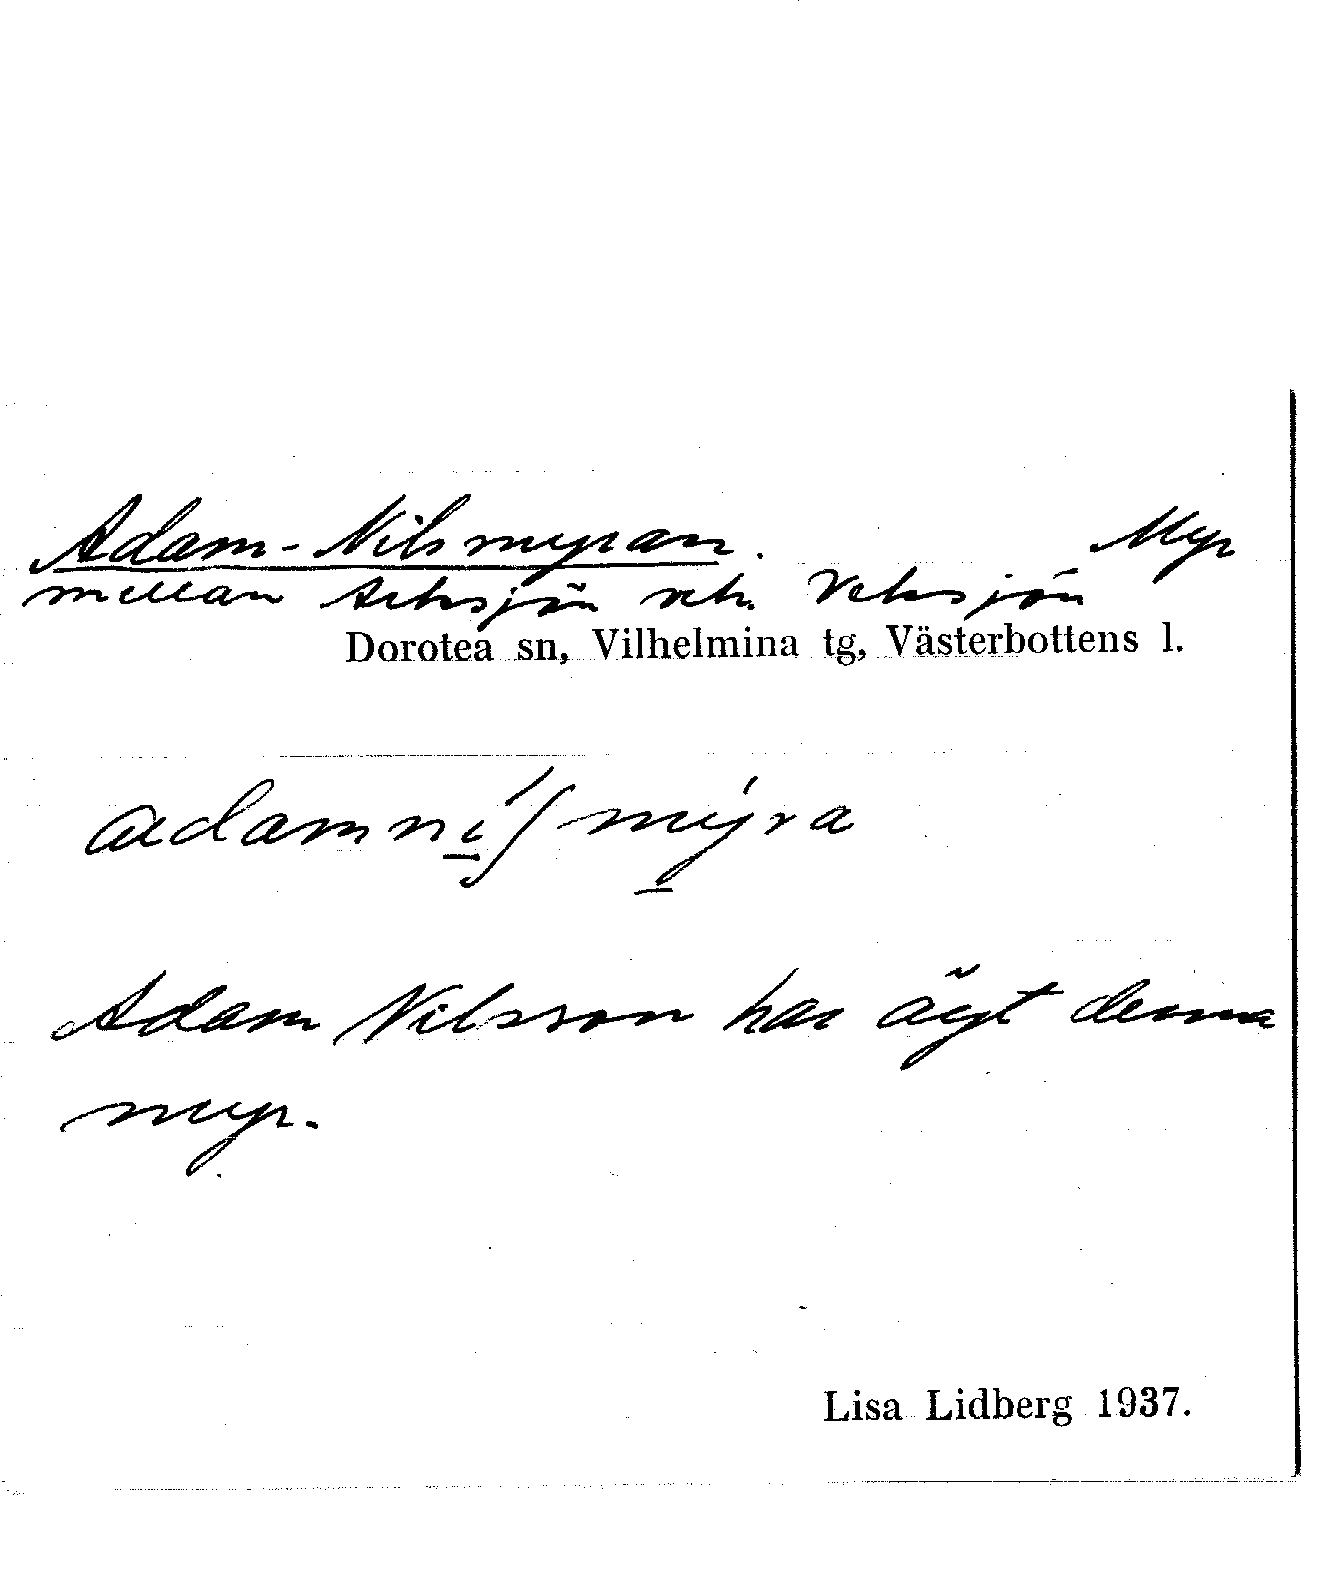 Adam-Nilsmyran. Myr
mellan Arksjön och Veksjön
Dorotea sn, Vilhelmina tg, Västerbottens l.
adamnı̱́ʃmý̱ra
Adam Nilsson har ägt denna
myr.
Lisa Lidberg 1937.